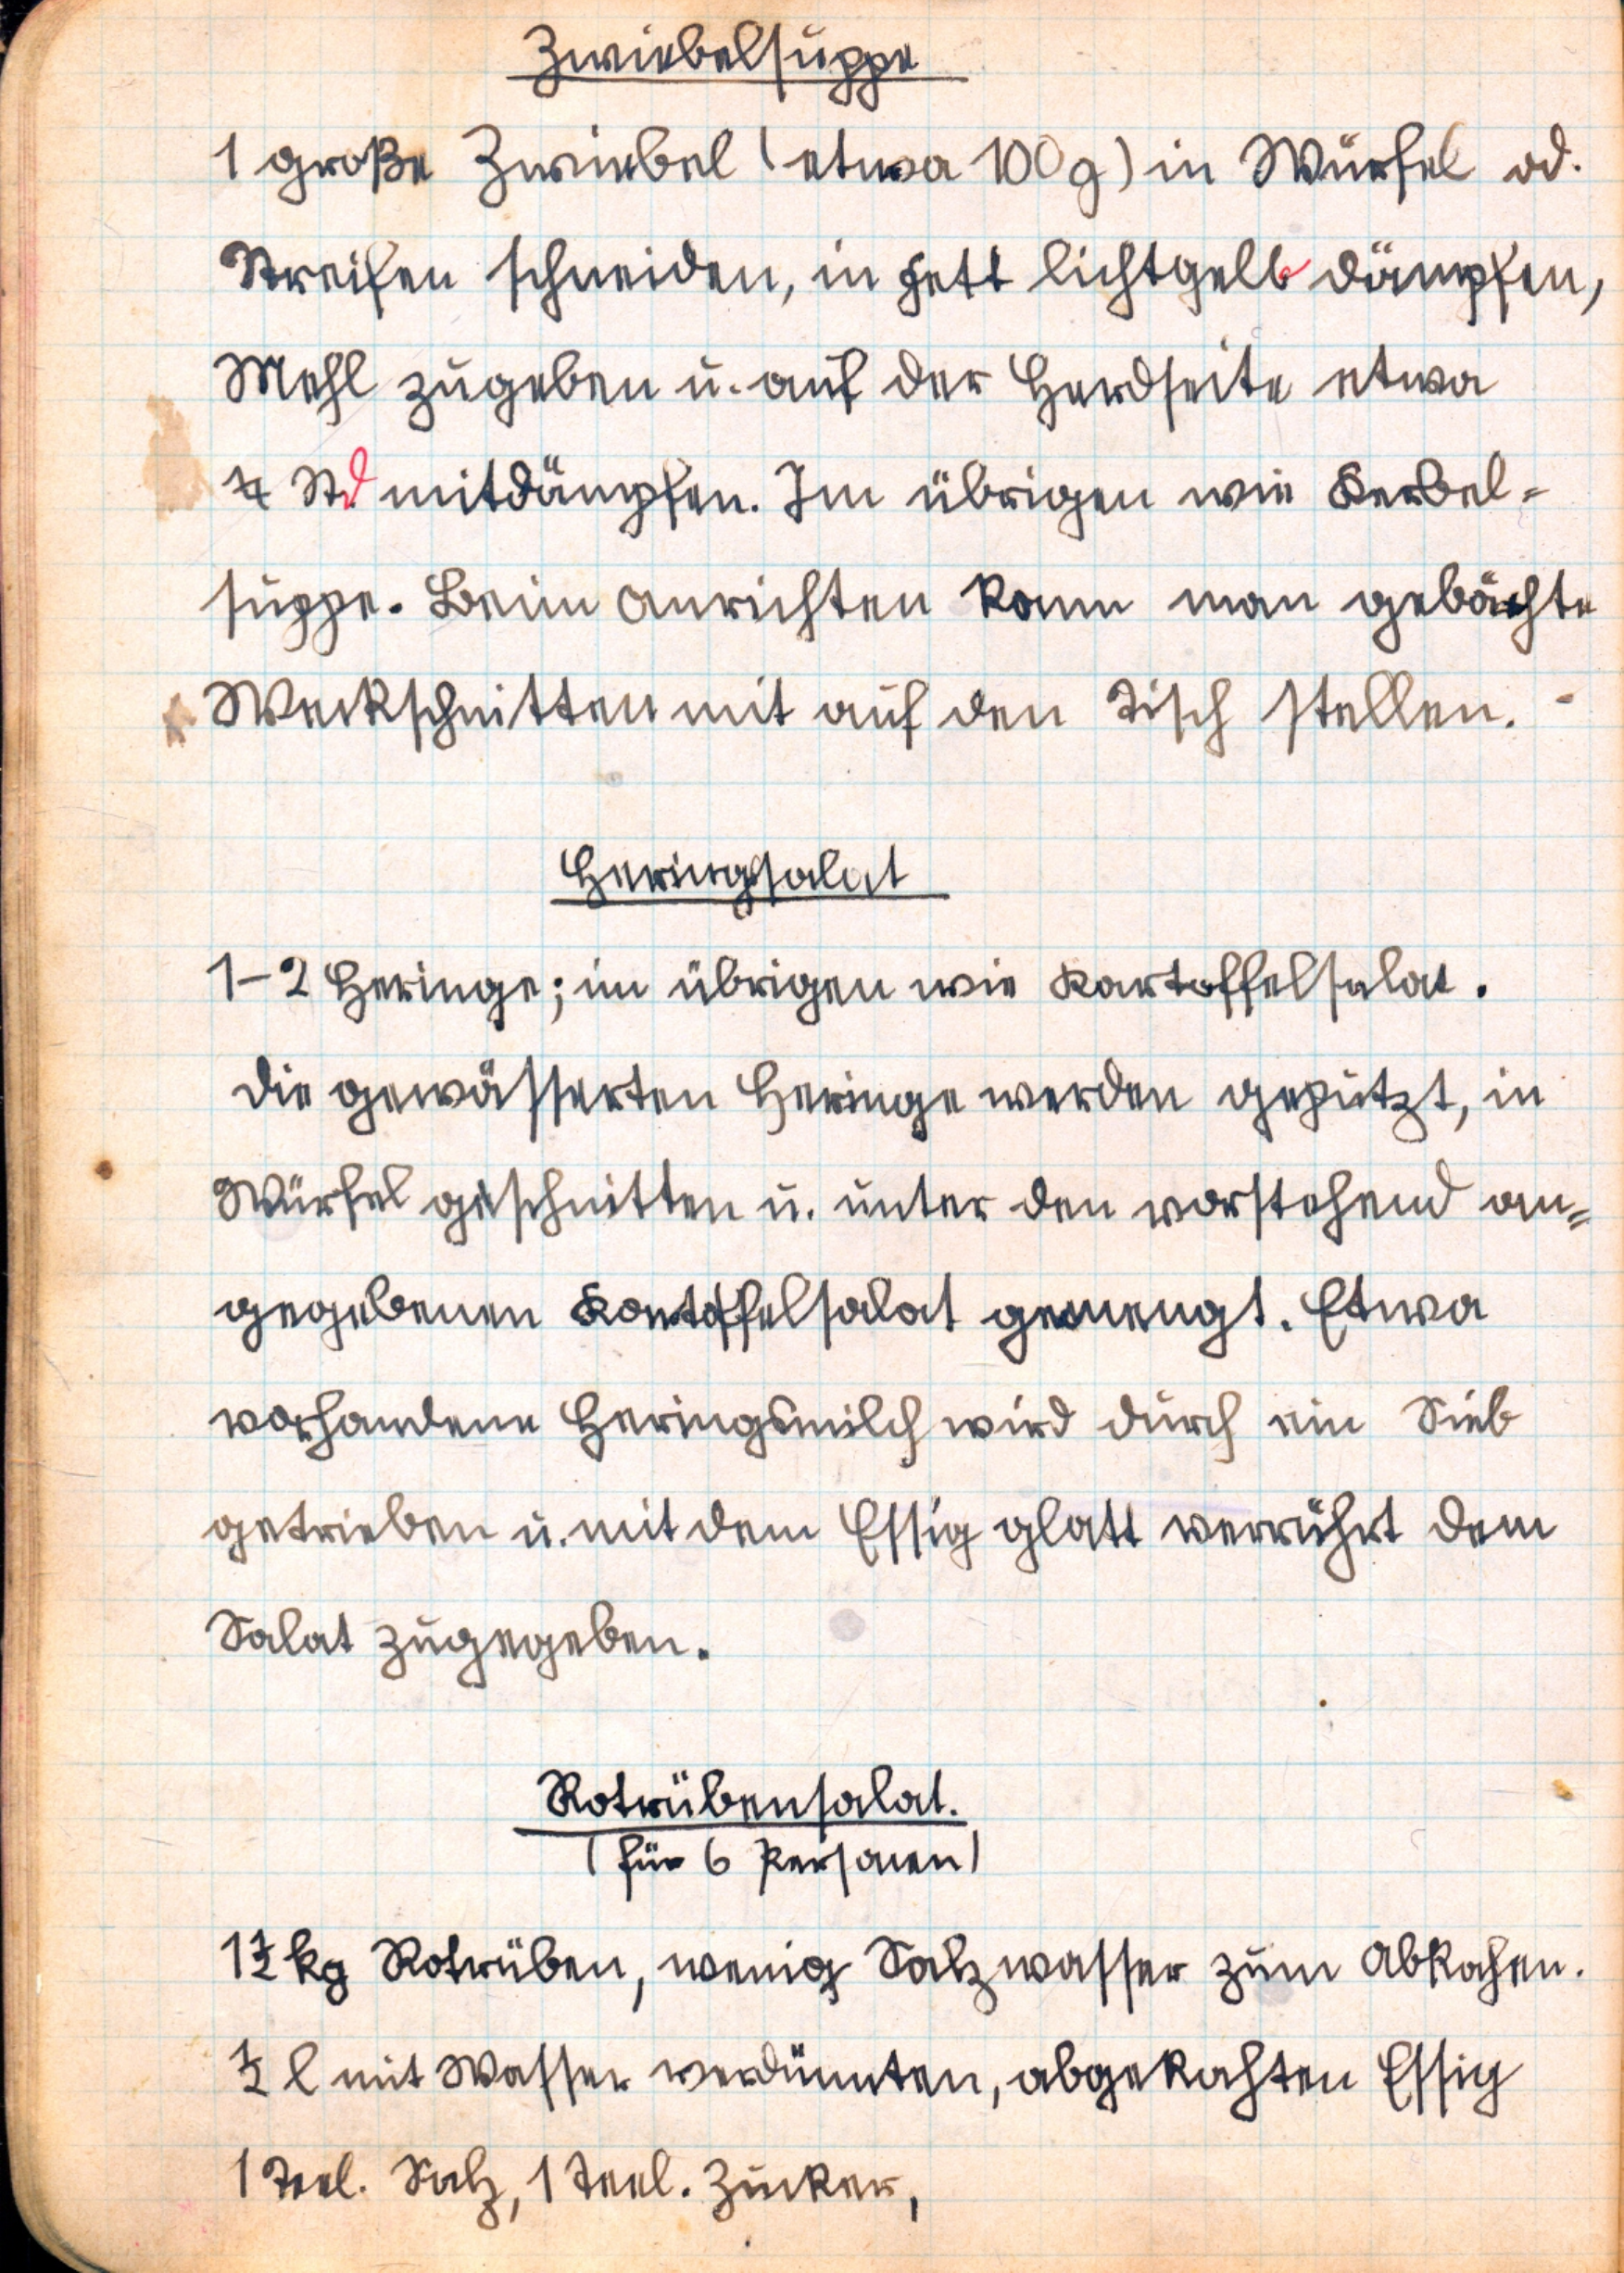 Zwiebelsuppe
1 große Zwiebel (etwa 100 g) in Würfel od.
Streifen schneiden, in Fett lichtgelb dämpfen,
Mehl zugeben u. auf der Herdseite etwa
¼ Std mitdämpfen. Im übrigen wie Kerbel=
suppe. Beim Anrichten kann man gebähte
Weckschnitten mit auf den Tisch stellen.
Heringsalat
1-2 Heringe; im übrigen wie Kartoffelsalat.
Die gewässerten Heringe werden geputzt, in
Würfel geschnitten u. unter den vorstehend an=
gegebenen Kartoffelsalat gemengt. Etwa
vorhandene Heringsmilch wird durch ein Sieb
getrieben u. mit dem Essig glatt verrührt dem
Salat zugegeben.
Rotrübensalat.
(für 6 Personen)
1½ kg Rotrüben, wenig Salzwasser zum Abkochen.
½ l mit Wasser verdünnten, abgekochten Essig
1 Teel. Salz, 1 Teel. Zucker,